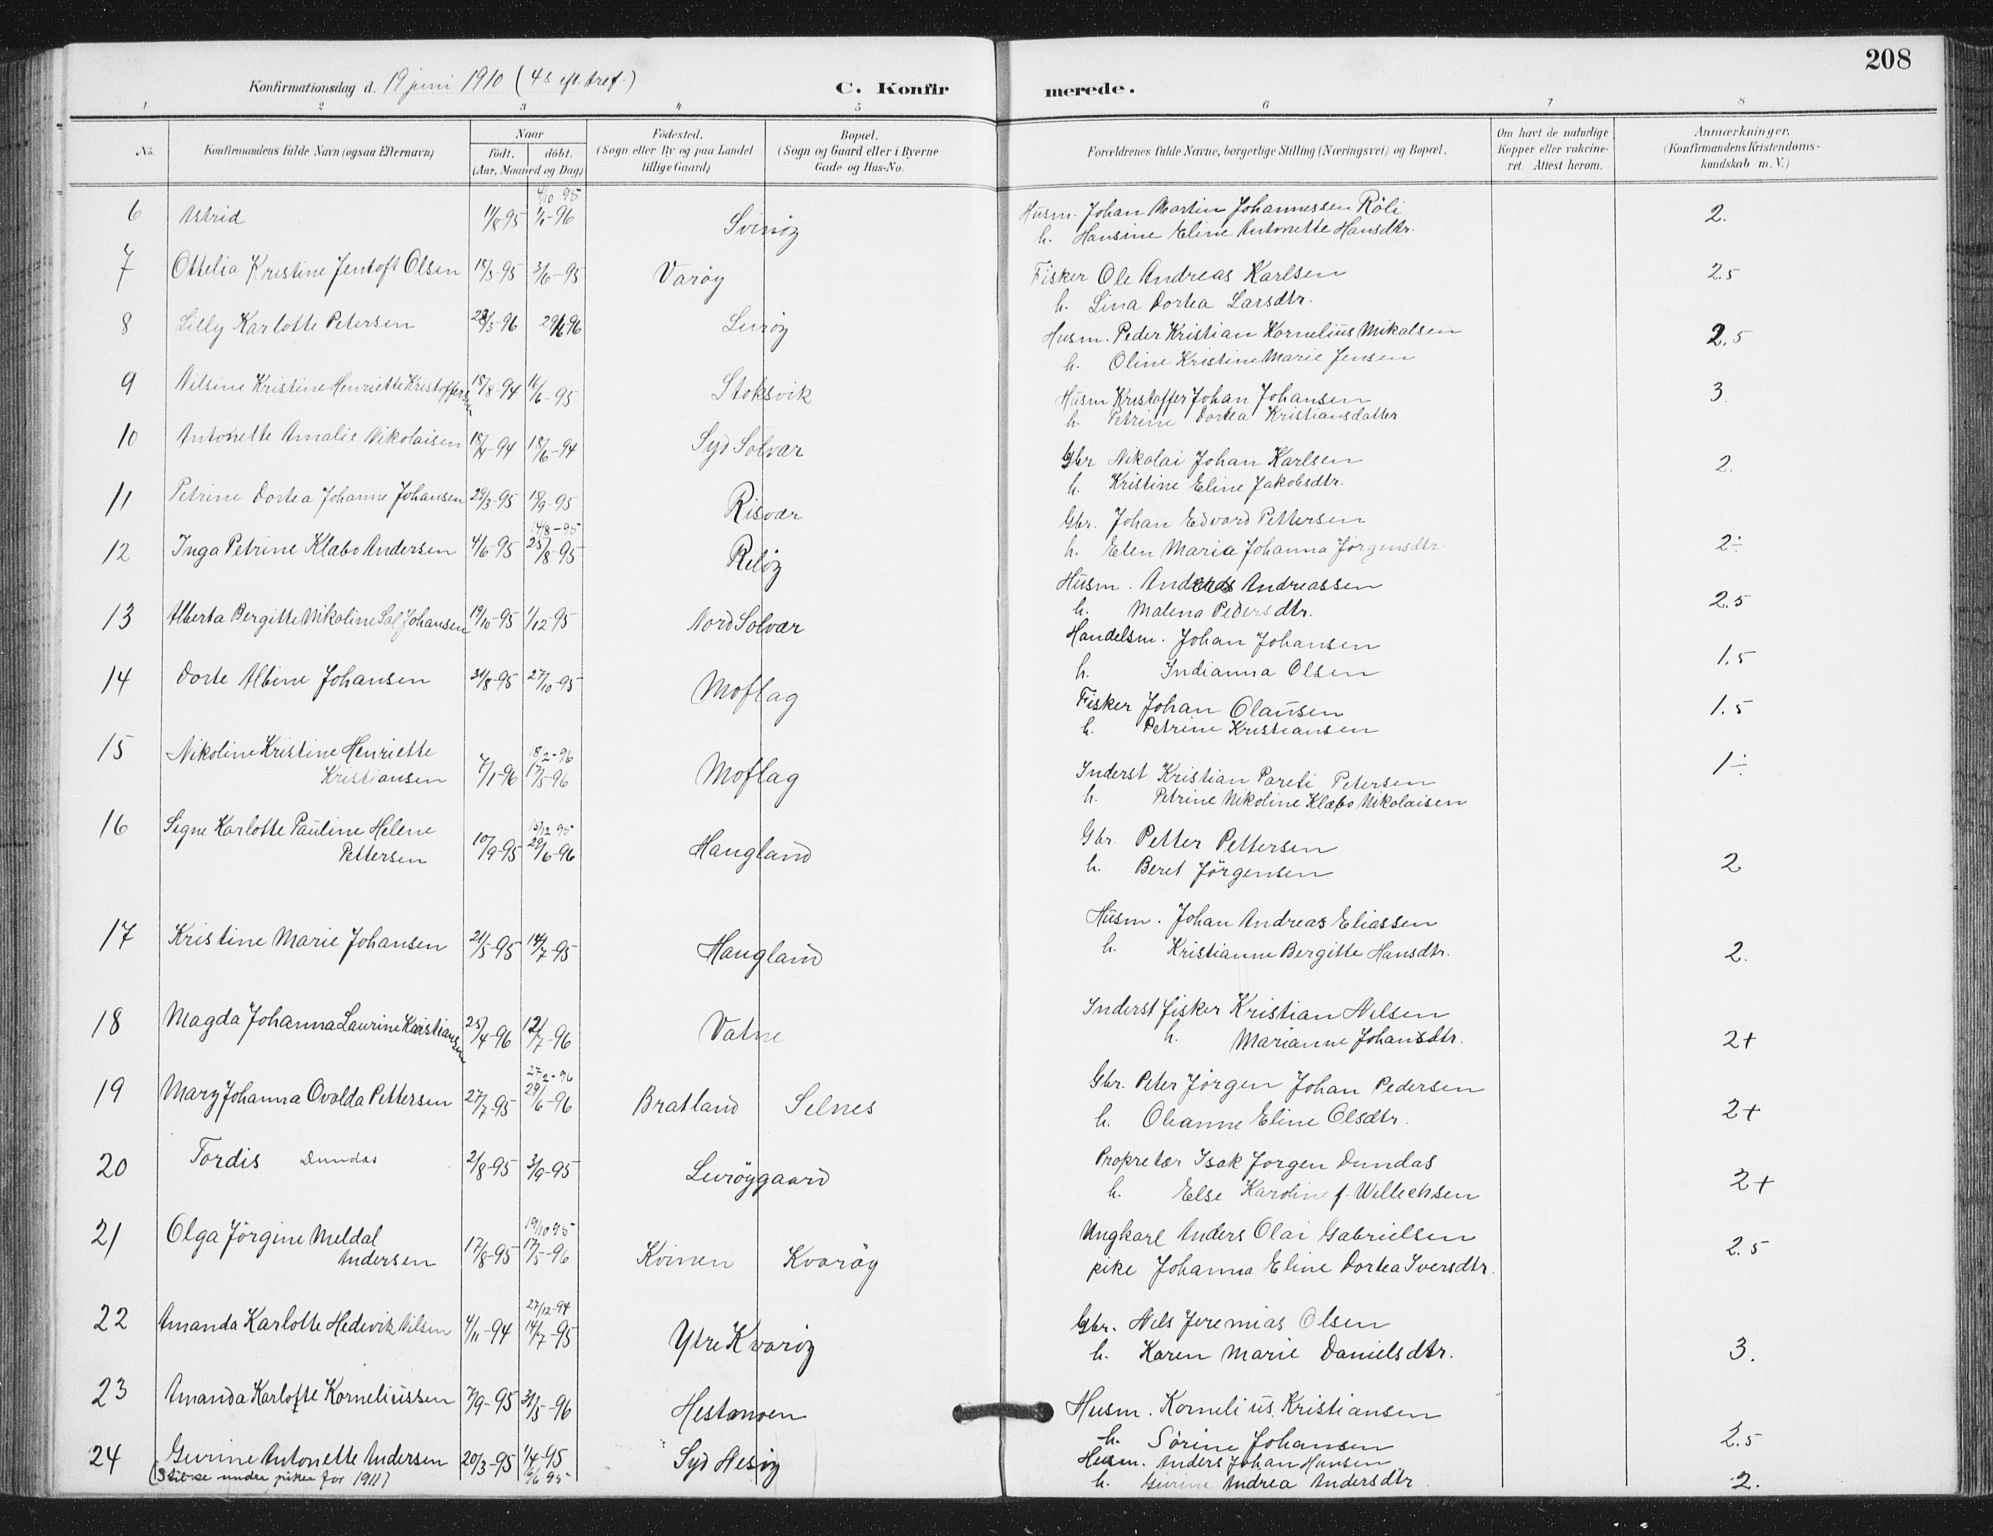 208
Konfirmationsdag d. 19 juni 1910 (4 s eft. tref.)
C. Konfirmerede.
1 2 3 4 5 6 7 8
No.
Konfirmandens fulde Navn (ogsaa Efternavn)
Naar
født. døbt.
(Aar, Maaned og Dag)
Fødested.
(Sogn eller By og paa Landet
tillige Gaard)
Bopæl.
(Sogn og Gaard eller i Byerne
Gade og Hus-No.
Forældrenes fulde Navne, borgerlige Stilling (Næringsvei) og Bopæl.
Om havt de naturlige
Kopper eller vakcine-
ret. Attest herom.
Anmærkninger.
(Konfirmandens Kristendoms-
kundskab m. V.)
4/10 95
6 Astrid 11/8-95 1/1-96 Svinøy Husm. Johan Martin Johannessen Röli 2.
h. Hansine Eline Antonette Hansdtr.
7 Ottelia Kristine Jentoft Olsen 18/5-95 3/6-95 Varøy Fisker Ole Andreas Karlsen 2.5
h. Lina Dortea Larsdtr.
8 Lilly Karlotte Petersen 23/5-96 29/6 96 Lurøy Husm. Peder Kristian Kornelius Mikalsen 2.5
h. Oline Kristine Marie Jensen
9 Nilsine Kristine Henriette Kristoffersen 18/8-94 16/6-95 Stoksvik Husm Kristoffer Johan Johansen 3.
h. Petrine Dortea Kristiansdatter
10 Antonette Amalie Nikolaisen 18/4-94 18/6-94 Syd Solvær Gbr Nikolai Johan Karlsen 2.
h. Kristine Eline Jakobsdtr.
11 Petrine Dortea Johanne Johansen 29/3-95 18/9-95 Risvær Gbr. Johan Edvard Pettersen
14/8-95
12 Inga Petrine Klabo Andersen 4/6-95 25/8-95 Reløy h. Elen Maria Johanna Jørgensdtr. 2÷
Husm. Andreas Andreassen
13 Alberta Bergitte Nikoline Sal Johansen 19/10-95 1/12-95 Nord Solvær h. Malena Pedersdtr. 2.5
Handelsm. Johan Johansen
14 Dorte Albine Johansen 31/8-95 27/10-95 Moflag h. Indianna Olsen 1.5
Fisker Johan Olausen 1.5
h. Petrine Kristiansen
15 Nikoline Kristine Henriette 18/2-96
Kristiansen 7/1-96 17/5-96 Moflag Inderst Kristian Pareli Petersen 1÷
h. Petrine Nikoline Klæbo Nikolaisen
16 Signe Karlotte Pauline Helene 15/12 95
Pettersen 10/9-95 29/6-96 Haugland Gbr. Petter Pettersen
h. Beret Jörgensen 2
17 Kristine Marie Johansen 21/5-95 14/7-95 Haugland Husm. Johan Andreas Eliassen
h. Kristianne Bergitte Hansdtr. 2.
18 Magda Johanna Laurine Kristiansen 25/4-96 12/7-96 Vatne Inderst fisker Kristian Nilsen
h. Marianne Johansdtr. 2+
27/2-96
19 Mary Johanna Ovalda Pettersen 27/7-95 29/6-96 Bratland Selnes Gbr. Peter Jörgen Johan Pedersen
h. Oleanne Eline Olsdtr. 2+
20 Tordis Dundas 2/8-95 3/9-95 Lurøygaard Propretær Isak Jorgen Dundas
h. Else Karoline f. Willechsen 2+
21 Olga Jörgine Meldal 19/10 95
Andersen 17/8-95 17/5-96 Kvinen Kvarøy Ungkarl Anders Olai Gabrielsen 2.5
pike Johanna Eline Dortea Iversdtr.
27/12-94
22 Amanda Karlotte Hedevik Nilsen 4/11-94 14/7-95 Ytre Kvarøy Gbr. Nils Jeremias Olsen
h. Karen Marie Danielsdtr. 3.
23 Amanda Karlotte Korneliussen 7/9-95 31/5-96 Hestmoen Husm. Kornelius Kristiansen
h. Sörine Johansen 2.5
24 Gurine Antonette Andersen 20/3-95 1/4-95 Syd Hesøy Husm. Anders Johan Hansen
(3 til se under piker for 1911) 6/6 95 h. Gurine Andrea Andersdtr 2.